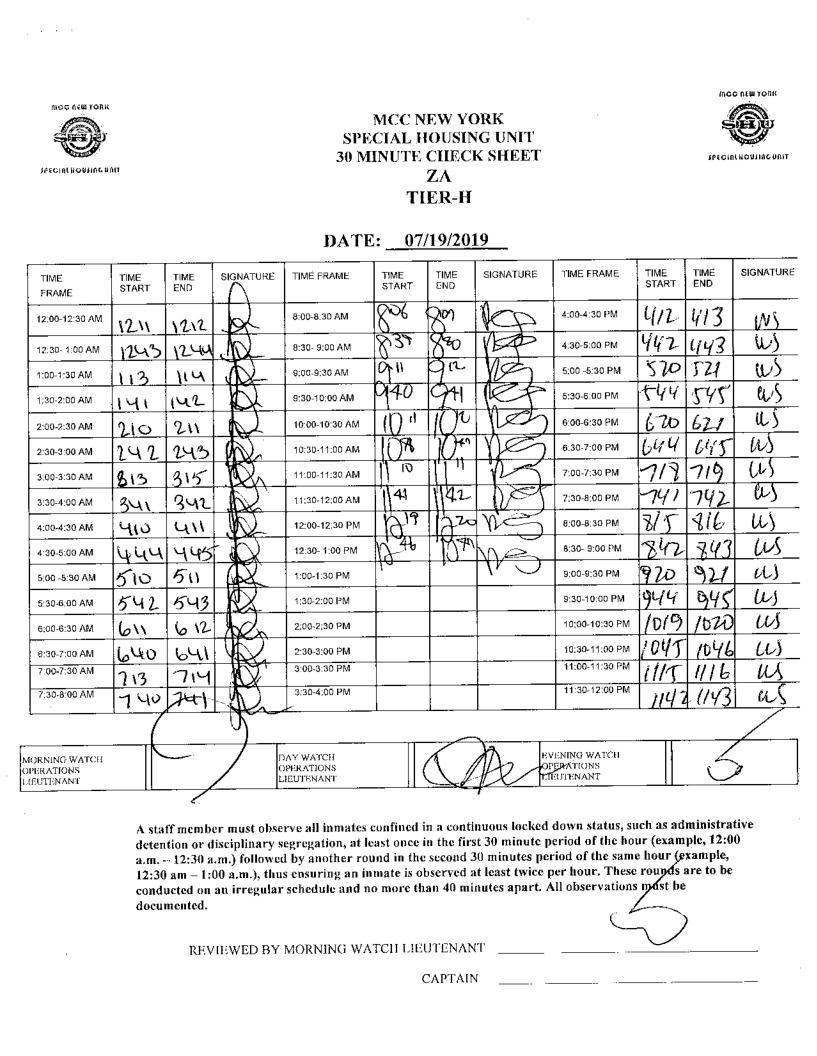 MCC NEW YORK
SHU
SPECIAL HOUSING UNIT
MCC NEW YORK
SHU
SPECIAL HOUSING UNIT
MCC NEW YORK
SPECIAL HOUSING UNIT
30 MINUTE CHECK SHEET
ZA
TIER-H
DATE: 07/19/2019
TIME FRAME TIME START TIME END SIGNATURE TIME FRAME TIME START TIME END SIGNATURE TIME FRAME TIME START TIME END SIGNATURE
12:00-12:30 AM 1211 1212 8:00-8:30 AM 806 4:00-4:30 PM 412 413 WS
12:30- 1:00 AM 1243 1244 8:30- 9:00 AM 4:30-5:00 PM 442 443 WS
1:00-1:30 AM 113 114 9:00-9:30 AM 911 912 5:00 -5:30 PM 520 521 WS
1:30-2:00 AM 141 142 9:30-10:00 AM 940 941 5:30-6:00 PM 544 545 WS
2:00-2:30 AM 210 211 10:00-10:30 AM 1011 1012 6:00-6:30 PM 620 621 WS
2:30-3:00 AM 242 243 10:30-11:00 AM 6:30-7:00 PM 644 645 WS
3:00-3:30 AM 313 315 11:00-11:30 AM 1110 1111 7:00-7:30 PM 718 719 WS
3:30-4:00 AM 341 342 11:30-12:00 AM 1141 1142 7:30-8:00 PM 741 742 WS
4:00-4:30 AM 410 411 12:00-12:30 PM 1219 1220 8:00-8:30 PM 815 816 WS
4:30-5:00 AM 444 445 12:30- 1:00 PM 1246 8:30- 9:00 PM 842 843 WS
5:00 -5:30 AM 510 511 1:00-1:30 PM 9:00-9:30 PM 920 921 WS
5:30-6:00 AM 542 543 1:30-2:00 PM 9:30-10:00 PM 944 945 WS
6:00-6:30 AM 611 612 2:00-2:30 PM 10:00-10:30 PM 1019 1020 WS
6:30-7:00 AM 640 641 2:30-3:00 PM 10:30-11:00 PM 1045 1046 WS
7:00-7:30 AM 713 714 3:00-3:30 PM 11:00-11:30 PM 1115 1116 WS
7:30-8:00 AM 740 741 3:30-4:00 PM 11:30-12:00 PM 1142 1143 WS
MORNING WATCH OPERATIONS LIEUTENANT DAY WATCH OPERATIONS LIEUTENANT EVENING WATCH OPERATIONS LIEUTENANT
A staff member must observe all inmates confined in a continuous locked down status, such as administrative
detention or disciplinary segregation, at least once in the first 30 minute period of the hour (example, 12:00
a.m. -- 12:30 a.m.) followed by another round in the second 30 minutes period of the same hour (example,
12:30 am – 1:00 a.m.), thus ensuring an inmate is observed at least twice per hour. These rounds are to be
conducted on an irregular schedule and no more than 40 minutes apart. All observations must be
documented.
REVIEWED BY MORNING WATCH LIEUTENANT
CAPTAIN